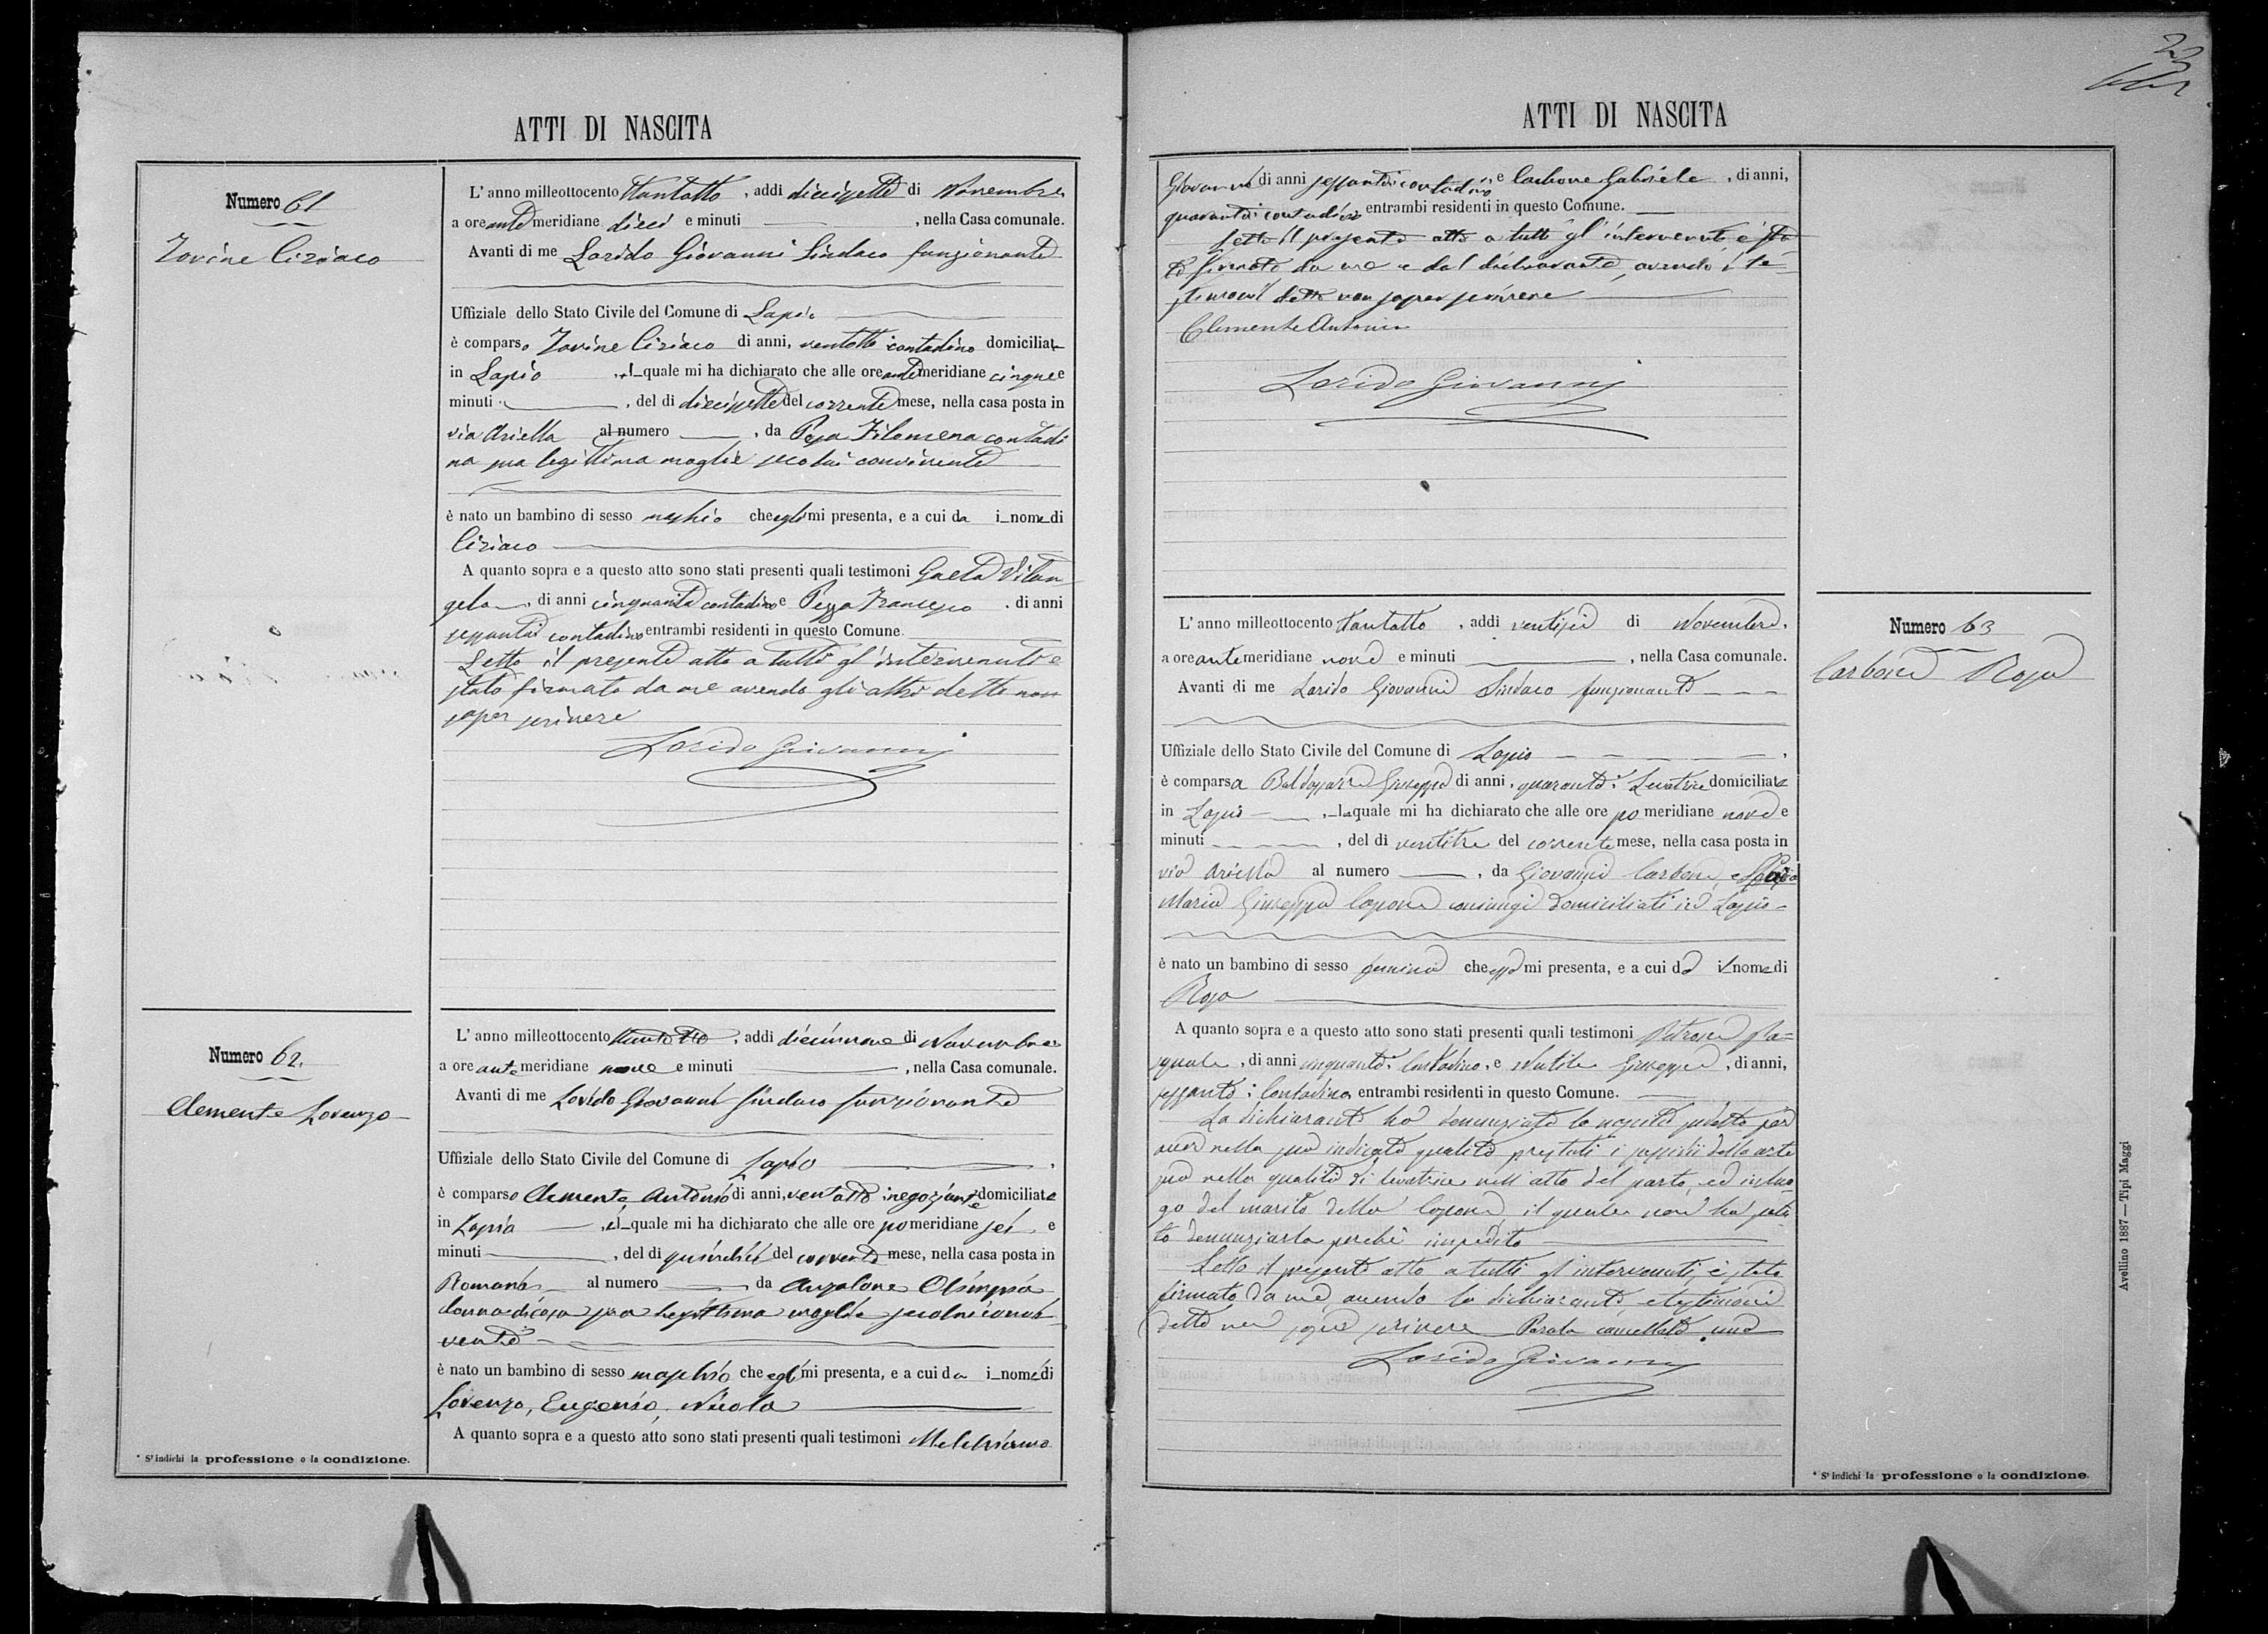 ATTI DI NASCITA
Numero 61
Iovine Ciriaco
L' anno milleottocento ttantotto, addi diecisette di Novembre
a ore ante meridiane dieci e minuti , nella Casa comunale.
Avanti di me Lorido Giovanni Sindaco funzionante
Uffiziale dello Stato Civile del Comune di Lapio
è comparso Iovine Ciriaco di anni, ventotto contadino domiciliat
in Lapio , il quale mi ha dichiarato che alle ore ante meridiane cinque e
minuti , del di diecisette del corrente mese, nella casa posta in
via Ariella al numero , da Pepa Filomena contadi
na sua legittima moglie seco lui convivente
è nato un bambino di sesso maschio che egli mi presenta, e a cui da i nome di
Ciriaco
A quanto sopra e a questo atto sono stati presenti quali testimoni Gaeta
gelo, di anni cinquanta contadino e Pezza Francesco, di anni
sessanta contadino entrambi residenti in questo Comune.
Letto il presente atto a tutti gl' intervenuti e
stato firmato da me avendo gli altri detto non
saper scrivere
Lorido Giovanni
Numero 62.
Clemente Lorenzo
L' anno milleottocento ttantotto, addi diecinnove di Novembre
a ore ante meridiane nove e minuti , nella Casa comunale.
Avanti di me Lorido Giovanni Sindaco funzionante
Uffiziale dello Stato Civile del Comune di Lapio
è comparso Clemente Antonio di anni, ventotto negoziante domiciliato
in Lapio , il quale mi ha dichiarato che alle ore pomeridiane sei e
minuti , del di quindici del corrente mese, nella casa posta in
Romano al numero da Anzalone Olimpia
donna di casa sua legittima moglie seco lui convi
vente
è nato un bambino di sesso maschio che egli mi presenta, e a cui da i nome di
Lorenzo, Eugenio, Nicola
A quanto sopra e a questo atto sono stati presenti quali testimoni
* S' indichi la professione o la condizione.
ATTI DI NASCITA
Giovanni di anni sessanta contadino, e Carbone Gabriele, di anni,
quaranta contadino entrambi residenti in questo Comune.
Letto il presente atto a tutti gl' intervenuti, è sta
to firmato da me e dal dichiarante, avendo i te
stimoni detto non saper scrivere
Clemente Antonio
Lorido Giovanni
Numero 63
Carbone Rosa
L' anno milleottocento ttantotto, addi ventisei di Novembre,
a ore antemeridiane nove e minuti , nella Casa comunale.
Avanti di me Lorido Giovanni Sindaco funzionante
Uffiziale dello Stato Civile del Comune di Lapio
è comparsa Baldassarre Giuseppa di anni, quaranta: Levatrice domiciliata
in Lapio , la quale mi ha dichiarato che alle ore pomeridiane nove e
minuti , del di ventitre del corrente mese, nella casa posta in
via Ariella al numero , da Giovanni Carbone, e
Maria Giuseppa Capone coniugi domiciliati in Lapio
è nato un bambino di sesso feminino che essa mi presenta, e a cui da il nome di
Rosa
A quanto sopra e a questo atto sono stati presenti quali testimoni Pa=
squale, di anni cinquanta: Contadino, e Giuseppe, di anni,
sessanta: Contadino entrambi residenti in questo Comune.
La dichiarante ha denunziato la nascita sudetta per
aver nella sua indicata qualità prestati i sussidii della arte
sua nella qualità di levatrice nell' atto del parto, ed in luo
go del marito della Capone, il quale non ha potu
to denunziarla perchè impedito
Letto il presente atto a tutti gl' intervenuti, è stato
firmato da me avendo la dichiarante e testimoni
detto non saper scrivere Parola cancellata una
Lorido Giovanni
* S' indichi la professione o la condizione.
Avellino 1887 — Tipi Maggi